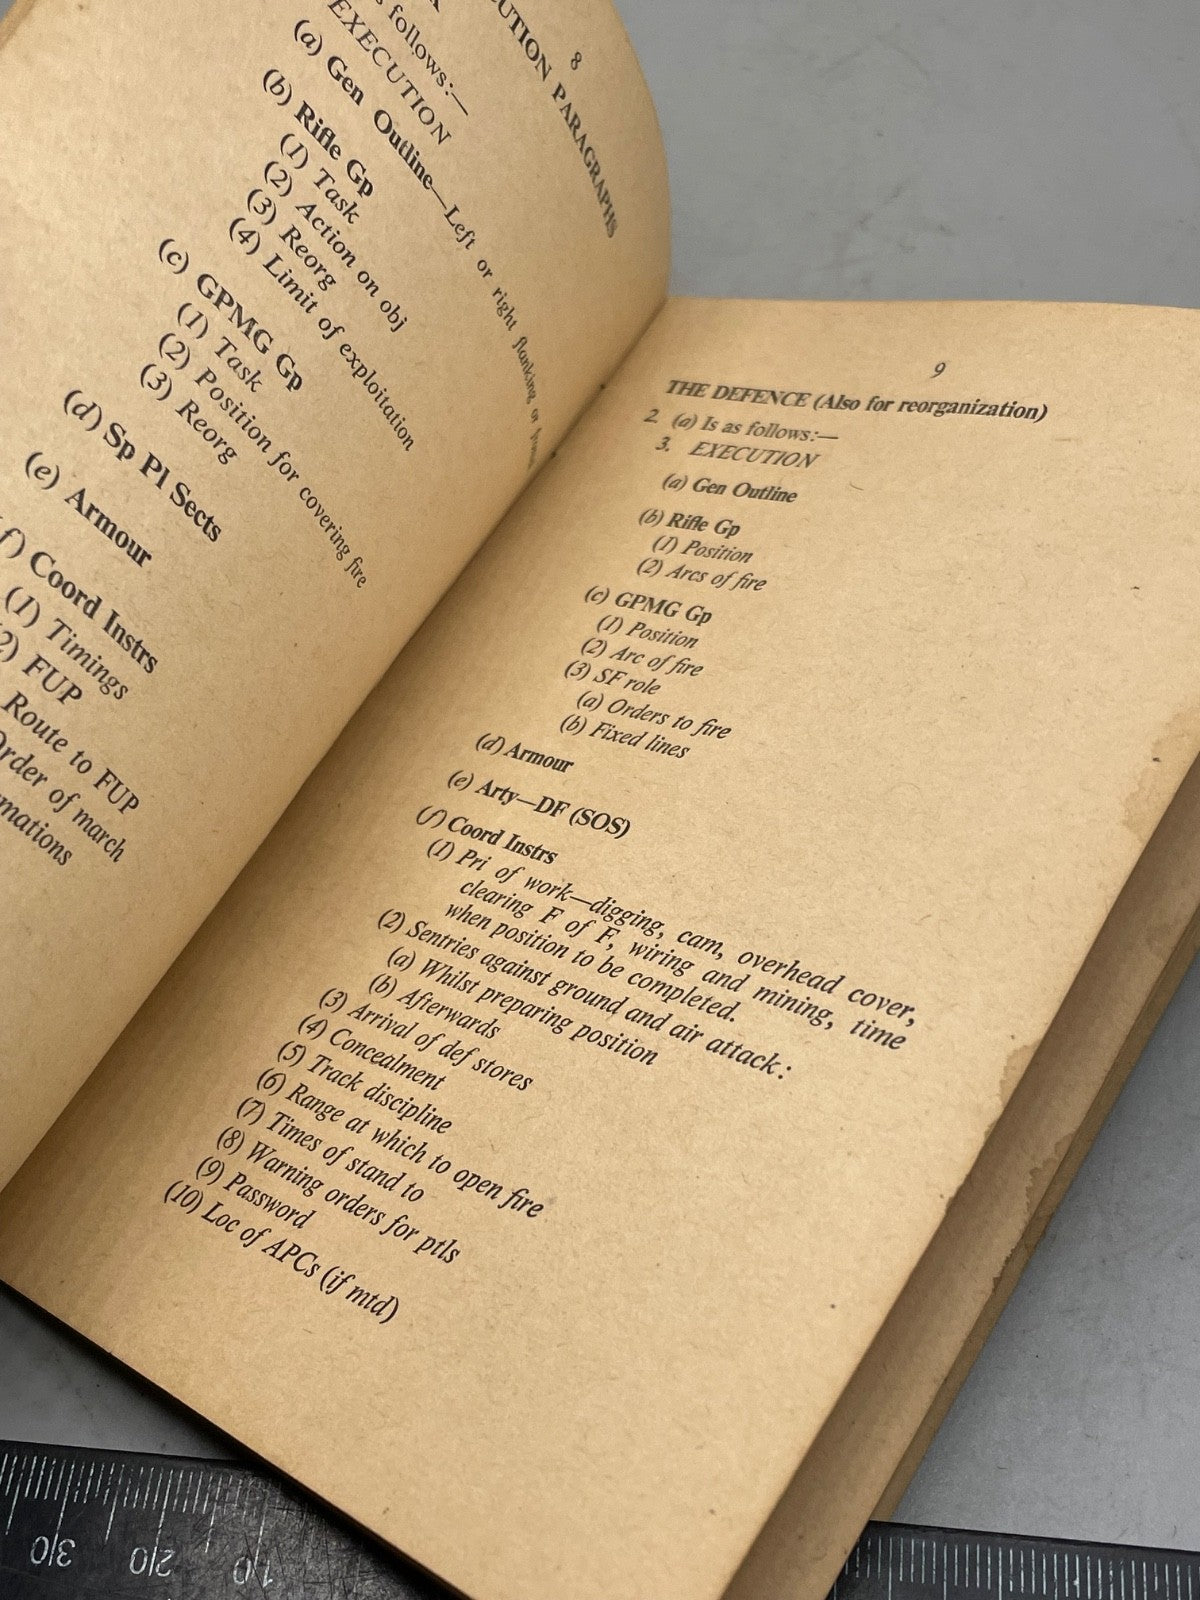 8
CUTION PARAGRAPHS
s follows:—
EXECUTION
(a) Gen Outline—Left or right flanking, or
(b) Rifle Gp
(1) Task
(2) Action on obj
(3) Reorg
(4) Limit of exploitation
(c) GPMG Gp
(1) Task
(2) Position for covering fire
(3) Reorg
(d) Sp Pl Sects
(e) Armour
f) Coord Instrs
(1) Timings
2) FUP
Route to FUP
rder of march
mations
9
THE DEFENCE (Also for reorganization)
2. (a) Is as follows:—
3. EXECUTION
(a) Gen Outline
(b) Rifle Gp
(1) Position
(2) Arcs of fire
(c) GPMG Gp
(1) Position
(2) Arc of fire
(3) SF role
(a) Orders to fire
(b) Fixed lines
(d) Armour
(e) Arty—DF (SOS)
(f) Coord Instrs
(1) Pri of work—digging, cam, overhead cover,
clearing F of F, wiring and mining, time
when position to be completed.
(2) Sentries against ground and air attack:
(a) Whilst preparing position
(b) Afterwards
(3) Arrival of def stores
(4) Concealment
(5) Track discipline
(6) Range at which to open fire
(7) Times of stand to
(8) Warning orders for ptls
(9) Password
(10) Loc of APCs (if mtd)
0|3 0|2 0 1